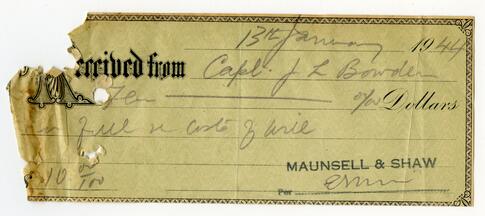 13th January 1944
Received from Capt. J L Bowden
Ten 0/00 Dollars
in full re costs of will
MAUNSELL & SHAW
10 00/100
Per